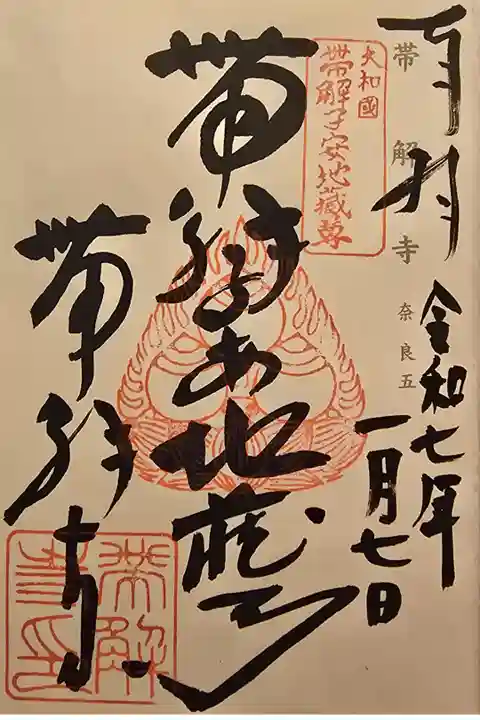 奉拝
帯解寺 奈良五
令和七年
一月七日
大和國
帯解子安地蔵尊
帯解子安地蔵尊
帯解寺
帯解
寺印